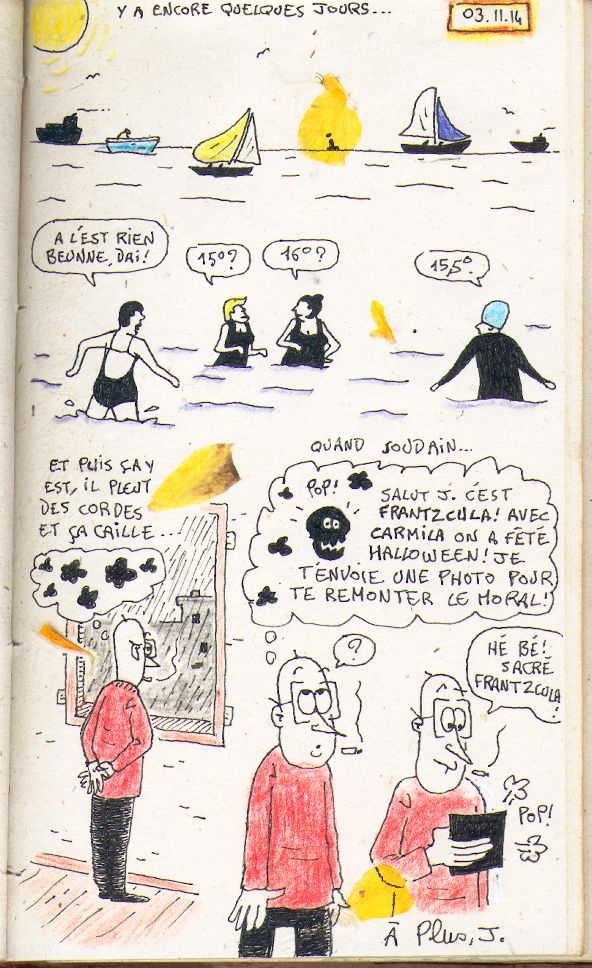 Y A ENCORE QUELQUES JOURS...
03.11.14
A L'EST RIEN
BEUNNE, DAI!
15°?
16°?
15,5°
ET PUIS ÇA Y
EST, IL PLEUT
DES CORDES
ET ÇA CAILLE...
QUAND SOUDAIN...
POP!
SALUT J. C'EST
FRANTZCULA! AVEC
CARMILA ON A FÊTÉ
HALLOWEEN! JE
T'ENVOIE UNE PHOTO POUR
TE REMONTER LE MORAL!
?
HÉ BÉ!
SACRÉ
FRANTZCULA
!
POP!
À Plus, J.